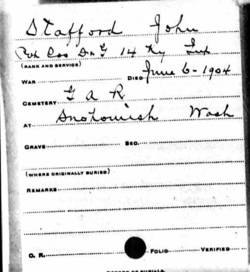 Stafford John
Co. D 14 Ky Inf
(RANK AND SERVICE)
WAR DIED June 6-1904
CEMETERY G A R
AT Snohomish Wash
GRAVE SEC.
(WHERE ORIGINALLY BURIED)
REMARKS
O. R. FOLIO VERIFIED